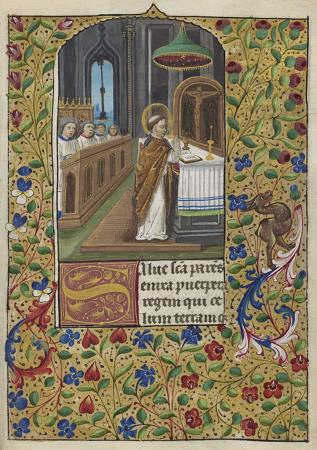 Salue sc̃a parẽs
enixa puerpera
regem qui ce
lum terramqꝫ